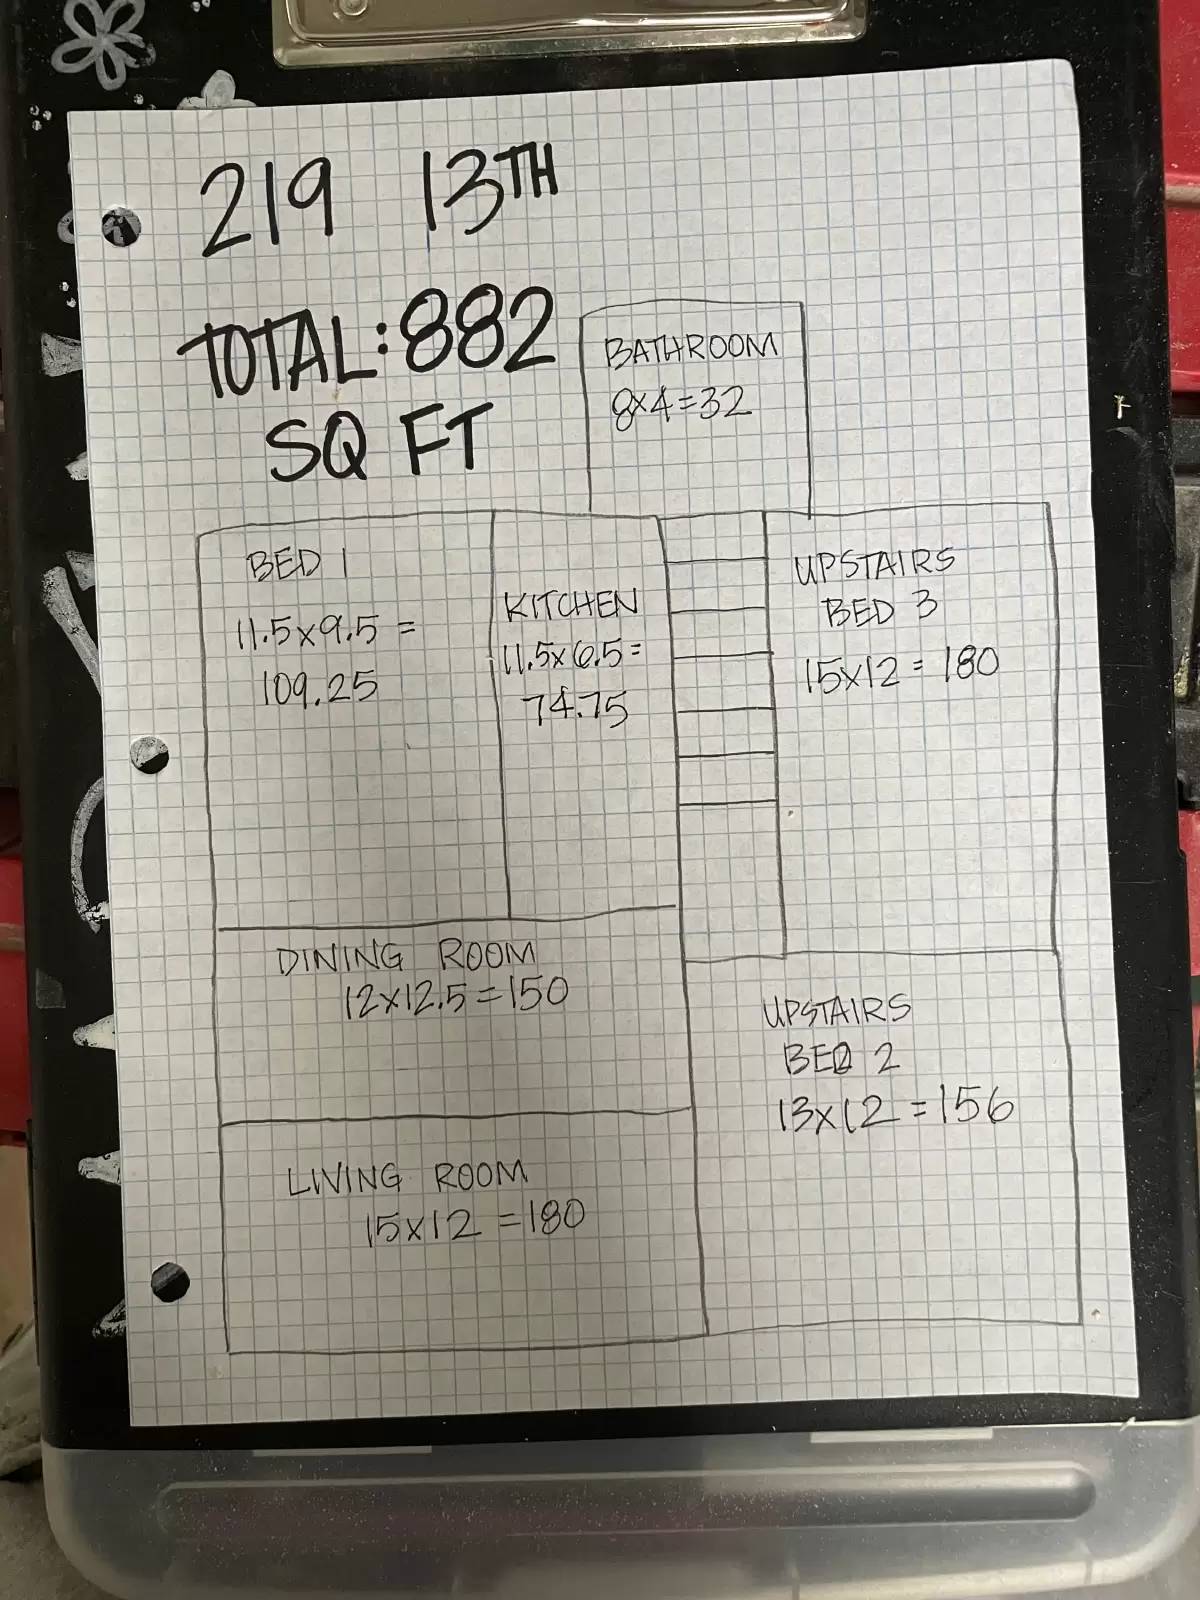 219 13TH
TOTAL: 882
SQ FT
BATHROOM
8x4=32
BED 1
11.5x9.5=
109.25
KITCHEN
11.5x6.5=
74.75
UPSTAIRS
BED 3
15x12=180
DINING ROOM
12x12.5=150
UPSTAIRS
BED 2
13x12=156
LIVING ROOM
15x12=180